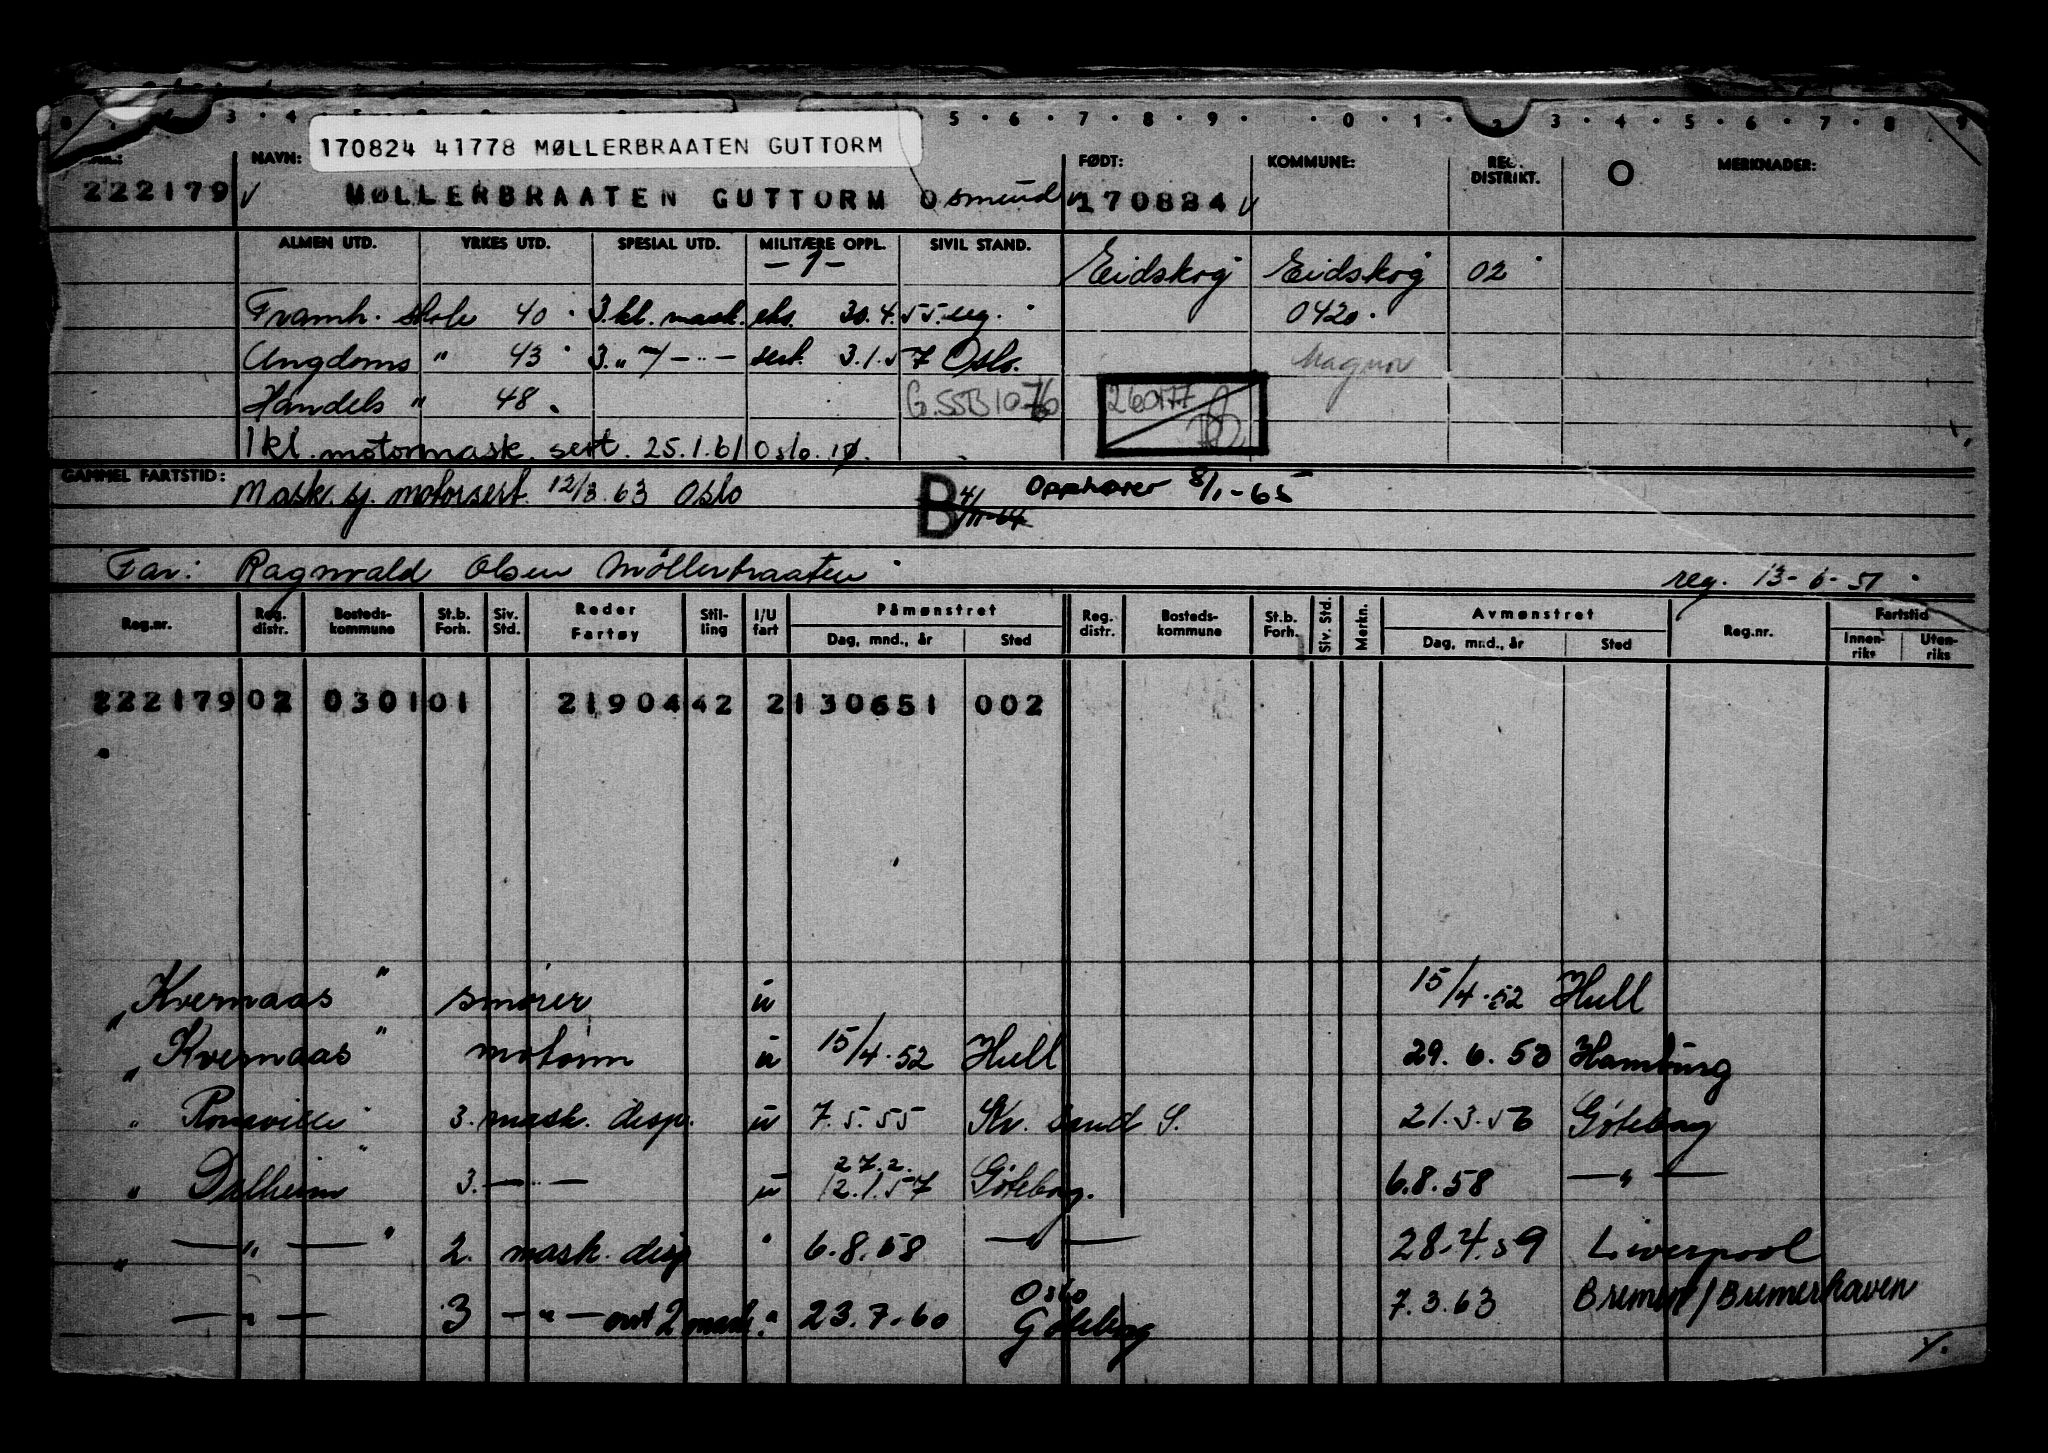 3 . 4 . 5 . 6 . 7 . 8 . 9 . . 0 . 1 . 2 . 3 . 4 . 5 . 6 . 7 . 8 . 9
170824 41778 MØLLERBRAATEN GUTTORM
NAVN: FØDT: KOMMUNE: REG. DISTRIKT. O MERKNADER:
222179 MØLLERBRAATEN GUTTORM Osmund 170824
ALMEN UTD. YRKES UTD. SPESIAL UTD. MILITÆRE OPPL. SIVIL STAND.
- 1 - Eidskog Eidskog 02
Framh. skole 40 3.kl. mask. eks. 30.4.55. ug. 0420.
Ungdoms " 43 3. " - " - sert. 3.1.57 Oslo. Magnor
Handels " 48. G.SSB 10-76 260177
1 kl. motormask. sert. 25.1.61 Oslo. 10.
GAMMEL FARTSTID: Mask. sj. motorsert. 12/3.63 Oslo B 4/11-64 Opphører 8/1-65
Far: Ragnvald Olsen Møllerbraaten reg. 13-6-51
Reg.nr. Reg. distr. Bosteds-kommune St.b. Forh. Siv. Std. Reder Fartøy Stilling I/U fart Påmønstret Dag, mnd., år Sted Reg. distr. Bosteds-kommune St.b. Forh. Siv. Std. Merkn. Avmønstret Dag, mnd., år Sted Reg.nr. Fartstid Innen-riks Uten-riks
222179 02 0301 01 2190442 2 130651 002
"Kvernaas" smører u 15/4.52 Hull
"Kvernaas" motorm u 15/4.52 Hull 29.6.53 Hamburg
"Ronaville" 3. mask. disp. u 7.5.55 Kr. sand S. 21.3.56 Göteborg
27.2.
"Dalheim" 3. — " — u 12.1.57 Göteborg. 6.8.58 — " —
" — " — " 2. mask. disp " 6.8.58 — " — 28.4.59 Liverpool
— " — 3 — " — ovt 2 mask. " 23.7.60 Oslo Göteborg 7.3.63 Bremen/Bremerhaven